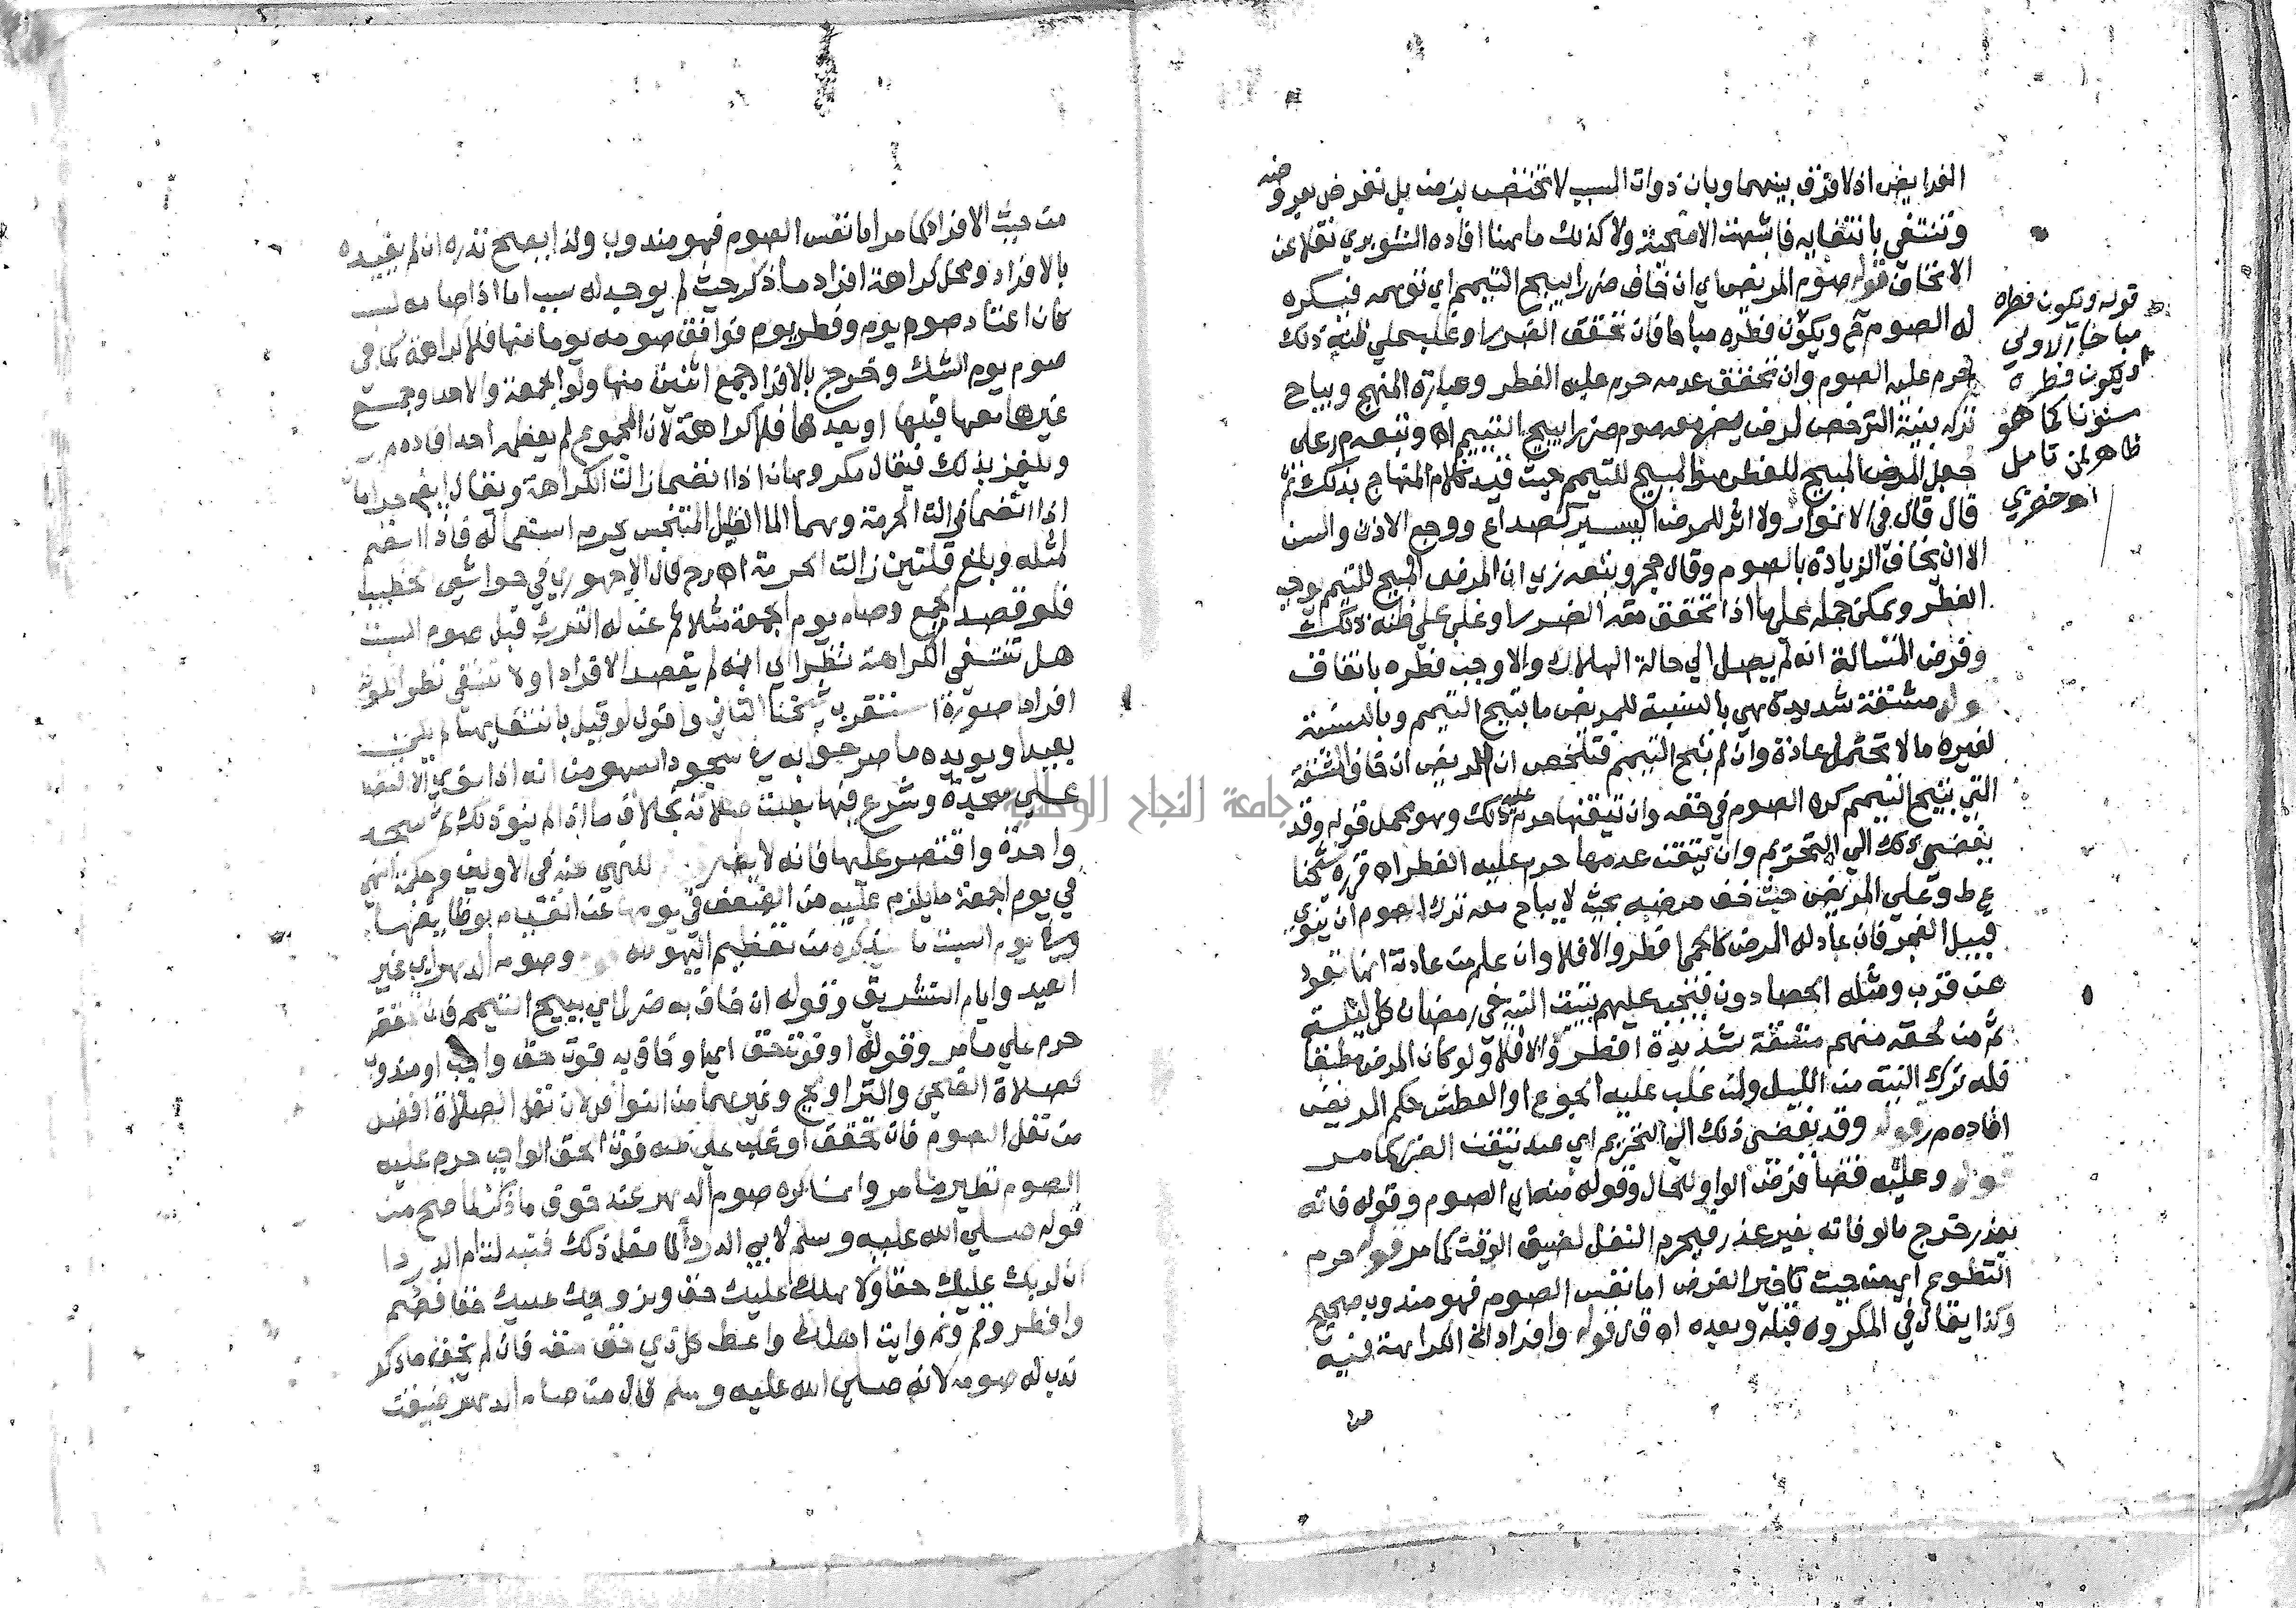 الفرايض اذ لا فرق بينهما وبان ذوات السبب لا تختص بزمن بل تفرض بعروضه
وتنتفي بانتفايه فاشبهت الاضحية ولا كذلك ما هنا افاده الشوبري نقلا عن
الاتحاف قوله صوم المريض اي ان خاف ضررا يبيح التيمم اي توهمه فيكره
له الصوم ح ويكون فطره مباحا فان تحقق الضرر او غلب علي ظنه ذلك
حرم عليه الصوم وان تحقق عدمه حرم عليه الفطر وعبارة المنهج ويباح
تركه بنية الترخص لمرض يضر معه صوم ضررا يبيح التيمم اه وتبعه م ر علي
جعل المرض المبيح للفطر هو المبيح للتيمم حيث قيد كلام المنهاج بذلك ثم
قال قال في الانوار ولا اثر للمرض اليسير كصداع ووجع الاذن والسن
الا ان يخاف الزيادة بالصوم وقال حجر وتبعه زي ان المرض المبيح للتيمم يوجب
الفطر ويمكن حمله علي ما اذا تحقق معه الضرر او غلب علي ظنه ذلك
وفرض المسالة انه لم يصل الي حالة الهلاك والا وجب فطره باتفاق
قوله مشقة شديدة هي بالنسبة للمريض ما تبيح التيمم وبالنسبة
لغيره ما لا تحتمل عادة وان لم تبح التيمم فتلخص ان المريض ان خاف المشقة
التي تبيح التيمم كره الصوم في حقه وان تيقنها حرم عليه ذلك وهو محمل قوله وقد
يفضي ذلك الي التحريم وان تيقن عدمها حرم عليه الفطر اه قرره شيخنا
ع ط وعلي المريض حيث خف مرضه بحيث لا يباح معه ترك الصوم ان ينوي
قبيل الفجر فان عاد له المرض كالحمي افطر والا فلا وان علم من عادته انها تعود
عن قرب ومثله الحصادون فيجب عليهم تبييت النية في رمضان كل ليلة
ثم من لحقه منهم مشقة شديدة افطر والا فلا ولو كان المرض مطبقا
فله ترك النية من الليل ولمن غلب عليه الجوع او العطش حكم المريض
افاده م ر قوله وقد يفضي ذلك الي التحريم اي عند تيقن الضرر كما مر
قوله وعليه قضا فرض الواو للحال وقوله منه اي الصوم وقوله فاته
بعذر خرج ما لو فاته بغير عذر فيحرم النفل لضيق الوقت كما مر قوله حرم
التطوع اي من حيث تاخير الفرض اما نفس الصوم فهو مندوب صحيح
وكذا يقال في المكروه قبله وبعده اه ق ل قوله وافراد الخ الكراهة فيه
من
قوله ويكون فطره
مباحا الاولي
ويكون فطره
مسنونا كما هو
ظاهر لمن تامل
اه خضري
من حيث الافراد كما مر اما نفس الصوم فهو مندوب ولذا يصح نذره ان لم يقيده
بالافراد ومحل كراهة افراد ما ذكر حيث لم يوجد له سبب اما اذا صامه لسبب
كان اعتاد صوم يوم وفطر يوم فوافق صومه يوما منها فلا كراهة كما في
صوم يوم الشك وخرج بالافراد جمع اثنين منها ولو الجمعة والاحد وجمع
غيرها معها قبلها او بعدها فلا كراهة لان المجموع لم يعظمه احد افاده م ر
ويلغز بذلك فيقال مكروهان اذا انضما زالت الكراهة ويقال ايضا حرامان
اذا انضما زالت الحرمة وهما الما القليل المتنجس يحرم استعماله فاذا انضم
لمثله وبلغ قلتين زالت الحرمة اه رح قال الاجهوري في حواشي خطيب
فلو قصد الجمع وصام يوم الجمعة مثلا ثم عن له الترك قبل صوم السبت
هل تنتفي الكراهة نظرا الي انه لم يقصد الافراد او لا تنتفي نظرا لكونه
افرادا صورة استقرب شيخنا الثاني واقول لو قيل بانتفايها لم يكن
بعيدا ويويده ما مر جوابه في سجود السهو من انه اذا نوي الاقتصار
علي سجدة وشرع فيها بطلت صلاته بخلاف ما اذا لم ينو ذلك ثم سجد
واحدة واقتصر عليها فانه لا يضر للنهي عنه في الاولين وحكمة النهي
في يوم الجمعة ما يلزم عليه من الضعف في يومها عن القيام بوظايفها
وفي يوم السبت ما سيذكره من تعظيم اليهود له قوله وصوم الدهر اي غير
العيد وايام التشريق وقوله ان خاف به ضررا اي يبيح التيمم فان تحققه
حرم علي ما مر وقوله او فوت حق اي او خاف به فوت حق واجب او مندوب
كصلاة الضحي والتراويح وغيرهما من النوافل لان نفل الصلاة افضل
من نفل الصوم فان تحقق او غلب علي ظنه فوت الحق الواجب حرم عليه
الصوم نظير ما مر وانما كره صوم الدهر عند خوف ما ذكر لما صح من
قوله صلي الله عليه وسلم لابي الدردا لما فعل ذلك فتبذلت ام الدردا
ان لربك عليك حقا ولاهلك عليك حقا ولزوجك عليك حقا فصم
وافطر وقم ونم وايت اهلك واعط كل ذي حق حقه فان لم يخف ما ذكر
ندب له صومه لانه صلي الله عليه وسلم قال من صام الدهر ضيقت
جامعة النجاح الوطنية